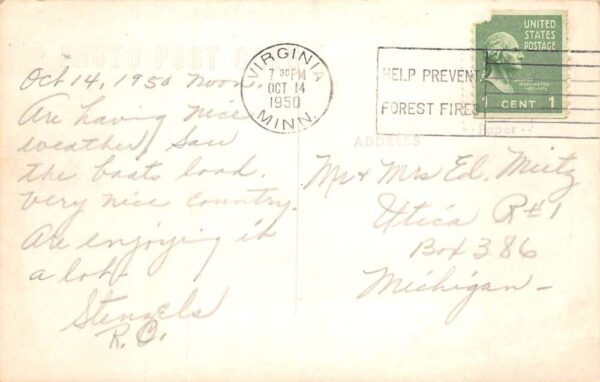 PHOTO POST
Oct 14, 1950 noon.
Are having nice
weather, Saw
the boats load.
Very nice country.
Are enjoying it
a lot.
Stengels
R. O.
VIRGINIA
7 30 PM
OCT 14
1950
MINN.
HELP PREVENT
FOREST FIRES
UNITED
STATES
POSTAGE
WASHINGTON
1 CENT 1
ADDRESS
Mr & Mrs Ed. Mietz
Utica R#1
Box 386
Michigan